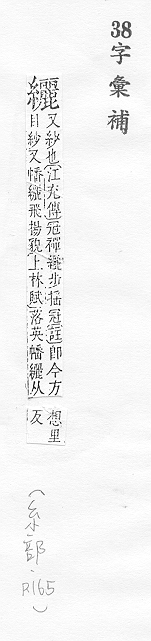 38字彙補
纚
又紗也江充傳冠禪纚步搖冠註即今方
目紗又幡纚飛揚貌上林賦落英幡纚从
想里
反
(糸部.P165)